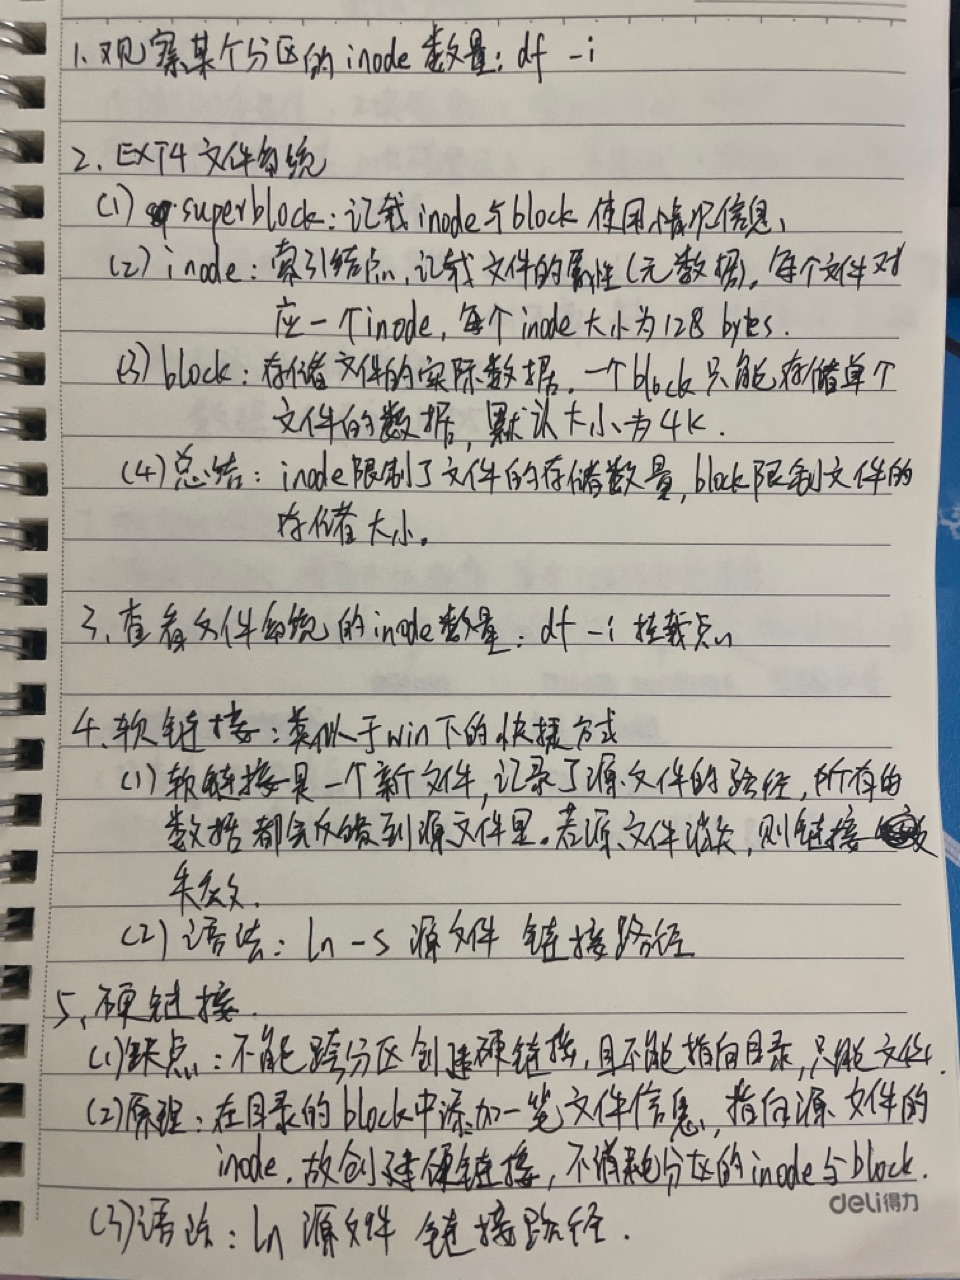 1. 观察某个分区的inode数量: df -i
2. EXT4文件系统
(1) superblock: 记载inode与block使用情况信息、
(2) inode: 索引结点, 记载文件的属性(元数据), 每个文件对
应一个inode, 每个inode大小为128 bytes.
(3) block: 存储文件的实际数据, 一个block只能存储单个
文件的数据, 默认大小为4K.
(4) 总结: inode限制了文件的存储数量, block限制文件的
存储大小。
3. 查看文件系统的inode数量: df -i 挂载点
4. 软链接: 类似于win下的快捷方式
(1) 软链接是一个新文件, 记录了源文件的路径, 所有的
数据都会反馈到源文件里。若源文件消失, 则链接
失效.
(2) 语法: ln -s 源文件 链接路径
5、硬链接.
(1) 缺点: 不能跨分区创建硬链接, 且不能指向目录, 只能文件.
(2) 原理: 在目录的block中添加一笔文件信息, 指向源文件的
inode. 故创建硬链接, 不消耗分区的inode与block.
deli得力
(3) 语法: ln 源文件 链接路径.